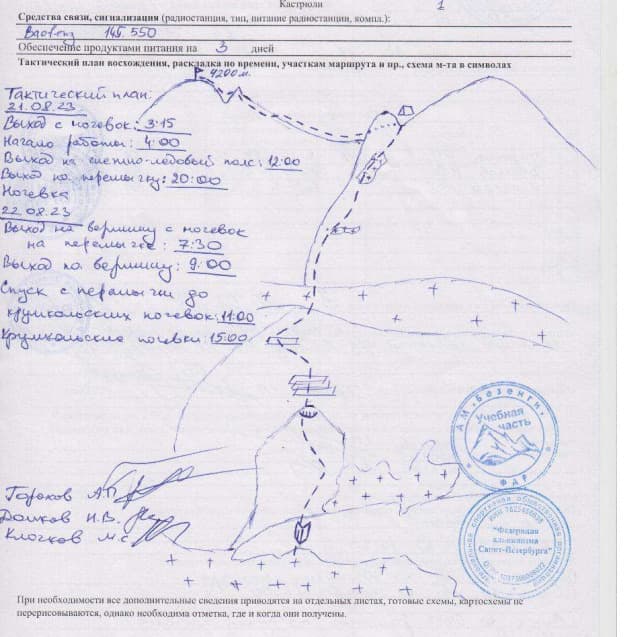 Кастрюли 1
Средства связи, сигнализация (радиостанция, тип, питание радиостанции, компл.):
Baofeng 145.550
Обеспечение продуктами питания на 3 дней
Тактический план восхождения, раскладка по времени, участкам маршрута и пр., схема м-та в символах
4200 м.
Тактический план:
21.08.23
Выход с ночевок: 3:15
Начало работы: 4:00
Выход на снежно-ледовый пояс: 12:00
Выход на перемычку: 20:00
Ночевка
22.08.23
Выход на вершину с ночевок
на перемычке: 7:30
Выход на вершину: 9:00
Спуск с перемычки до
крумкольских ночевок: 11:00
Крумкольские ночевки: 15:00
А.М. "Безенги"
Учебная
часть
ФАР
Горохов А.П.
Долков Н.В.
Клочков М.С.
"Федерация
альпинизма
Санкт-Петербурга"
При необходимости все дополнительные сведения приводятся на отдельных листах, готовые схемы, картосхемы не
перерисовываются, однако необходима отметка, где и когда они получены.